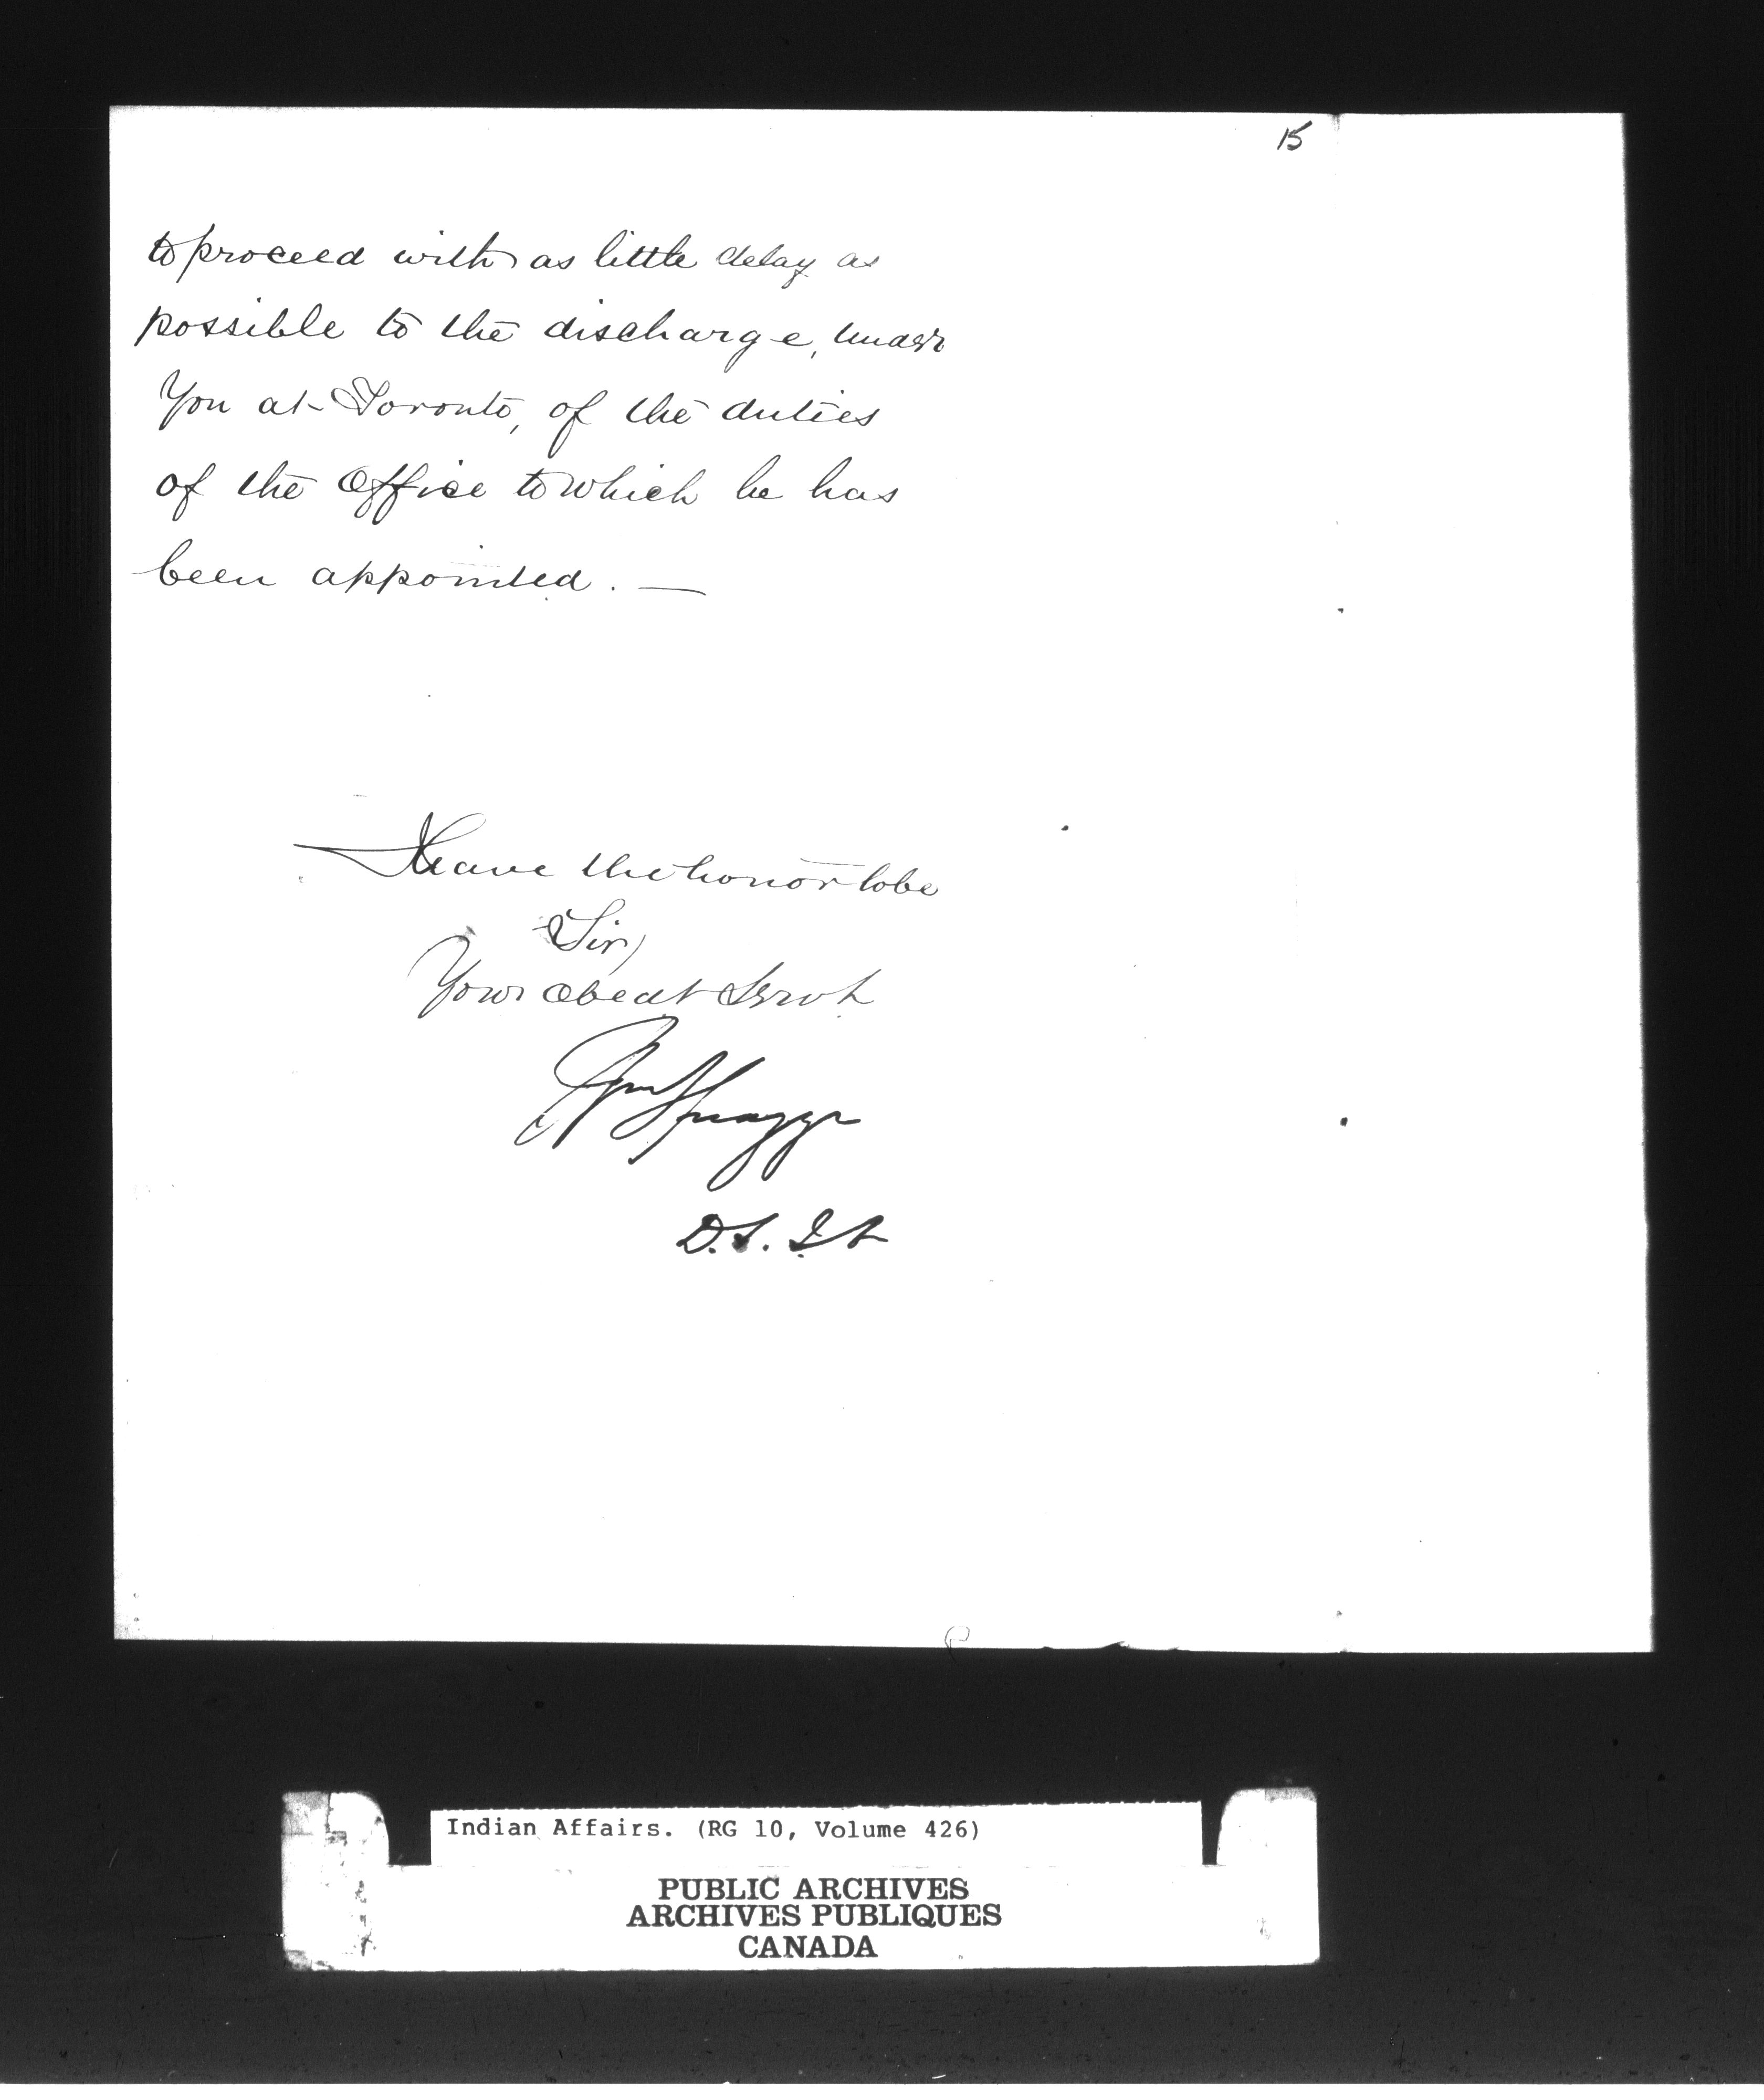 15
to proceed with as little delay as
possible to the discharge, under
You at Toronto, of the duties
of the Office to which he has
been appointed. —
I have the honor to be
Sir,
Your obedt Servt
Wm Spragge
D.S. I A
Indian Affairs. (RG 10, Volume 426)
PUBLIC ARCHIVES
ARCHIVES PUBLIQUES
CANADA